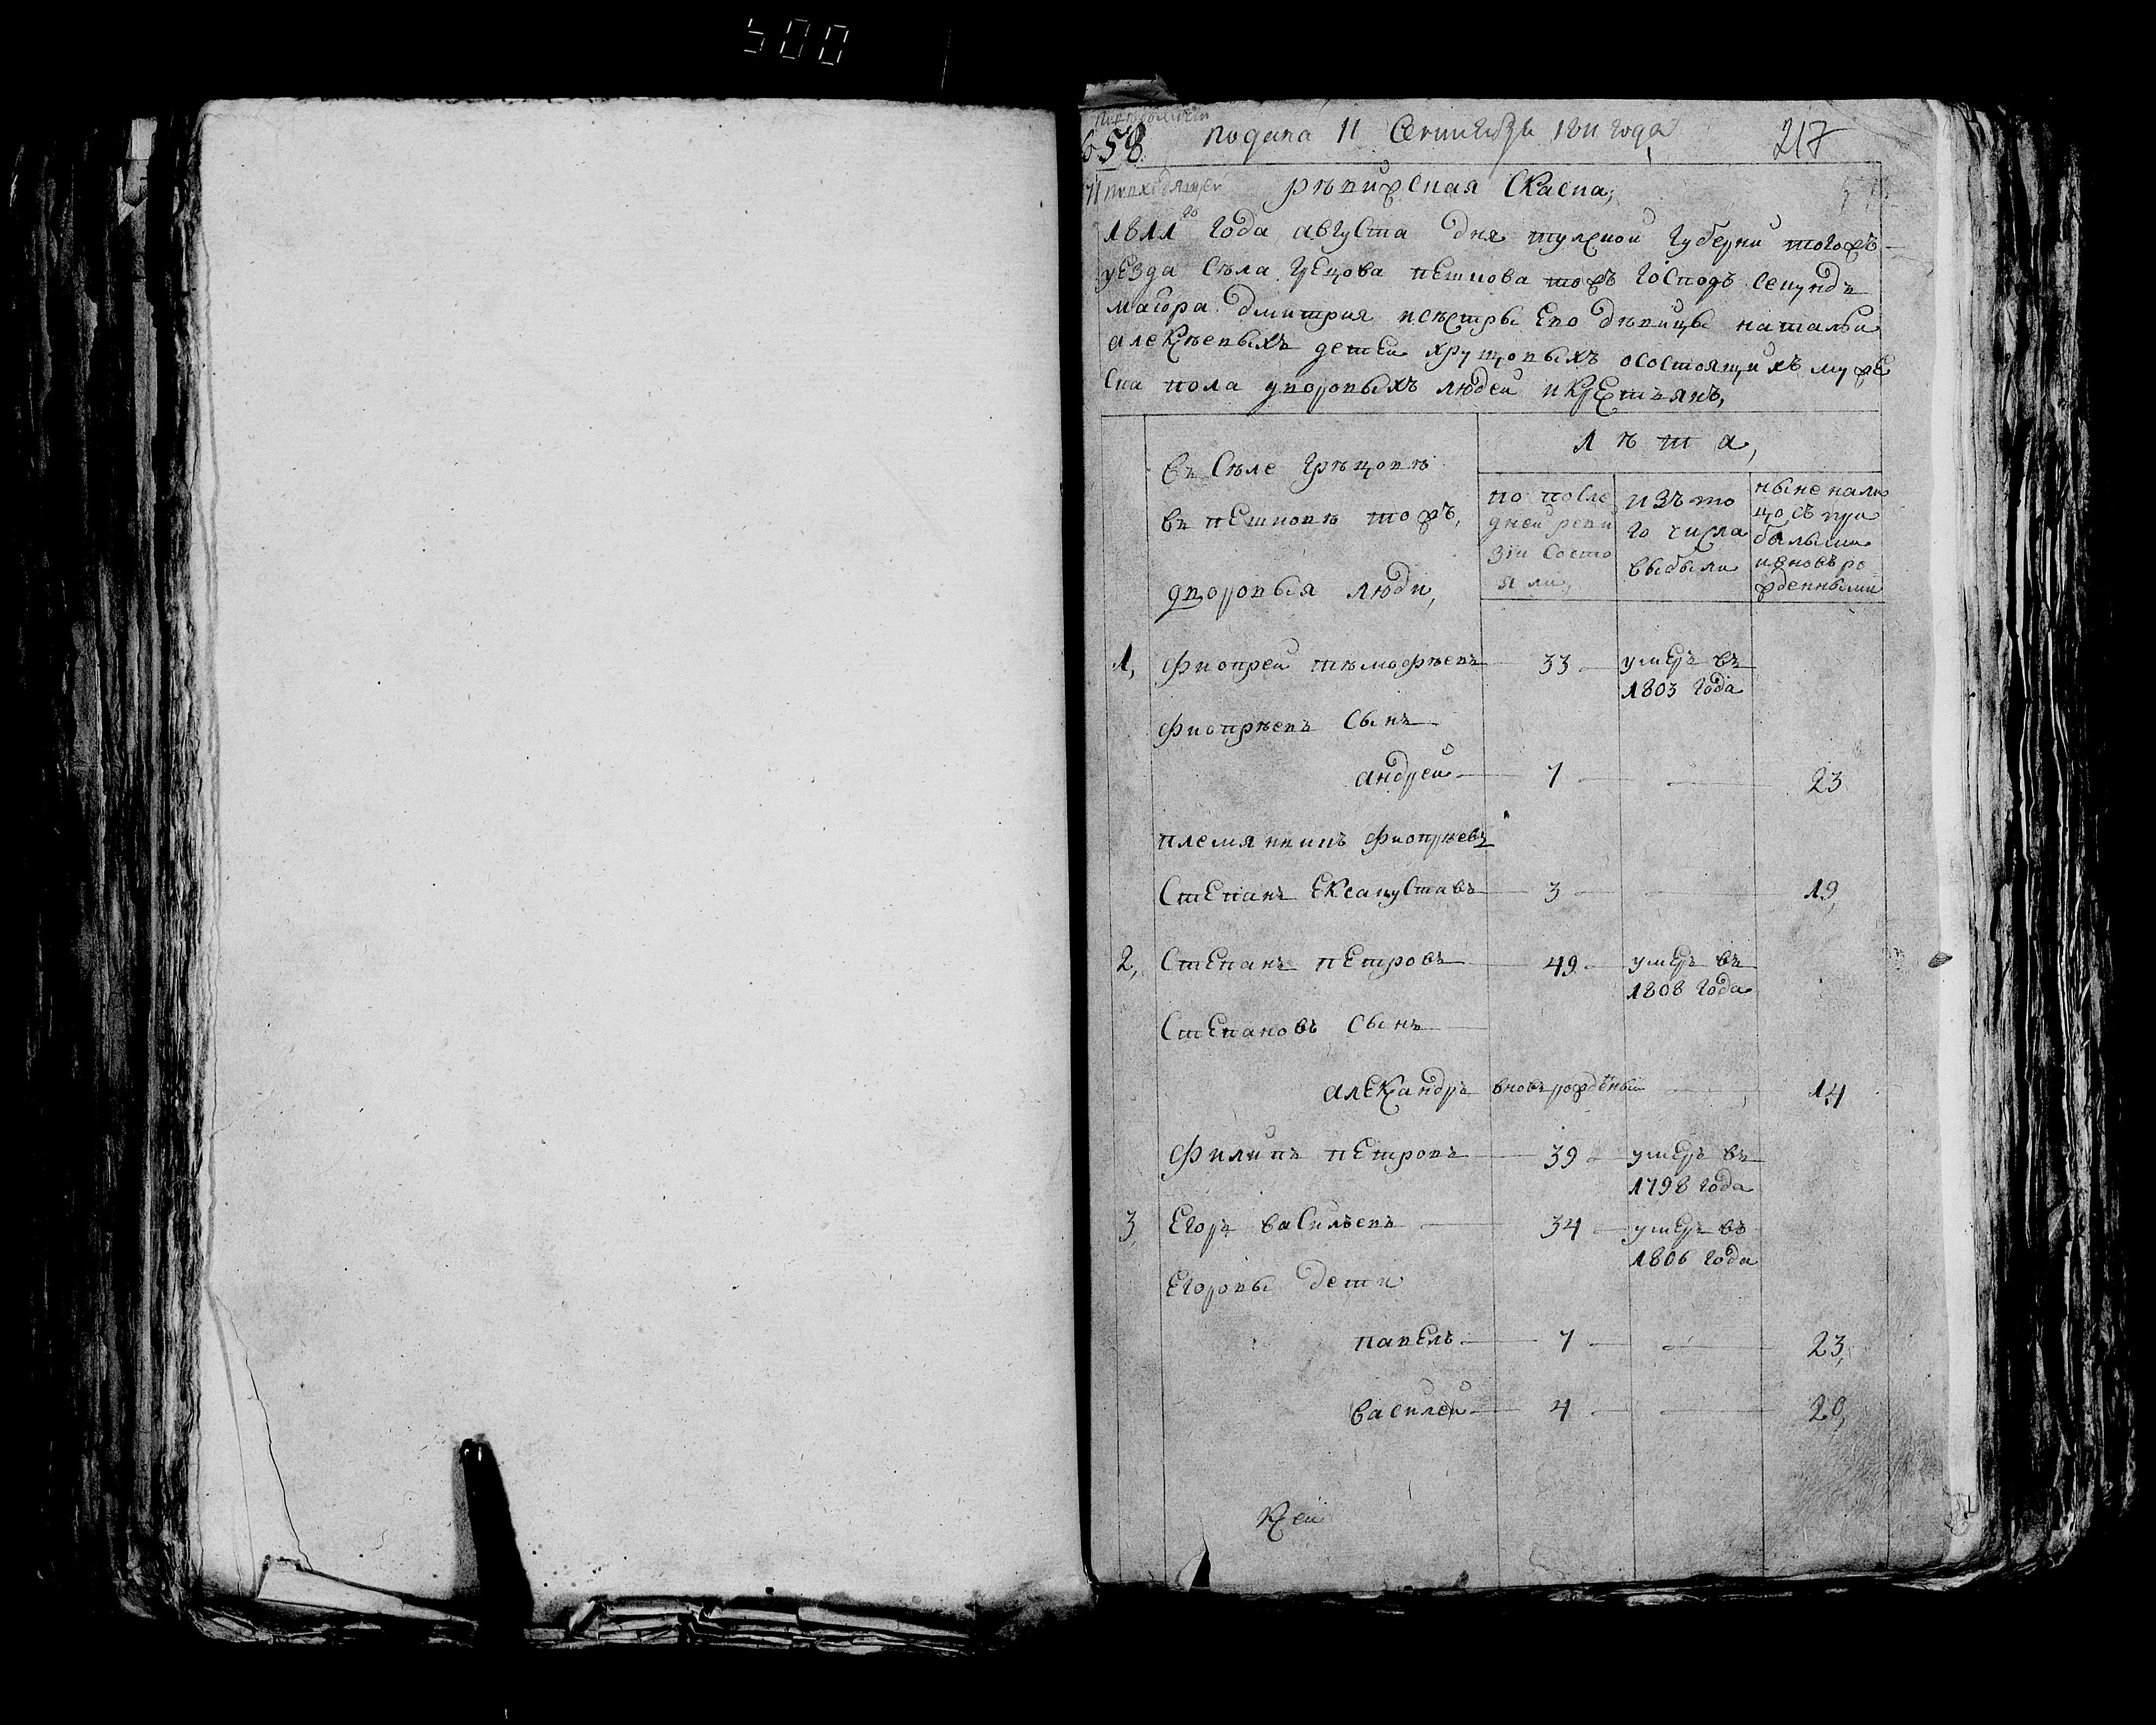 500
658 подана 11 Сентября 1811 года 217
рѣвижская скаска,
1811го года августа дня тулской губерни тогожъ
уезда села грецова пешкова тожъ господъ секундъ
маиора дмитрия исѣстры ево дѣвицы натальи
алексѣевыхъ детей хрущовыхъ осостоящихъ муже
ска пола дворовыхъ людей икрестьянъ,
лѣта,
въ сѣле грѣцовѣ
въ пешковѣ тожъ,
дворовыя люди,
по после
дней реви
зіи состо
яли,
изъ то
го числа
выбыли
ныне нали
цо съ при
былыми
ивновь ро
жденными
1, Фиопрей тимофѣевъ 33 умеръ въ
1803 года
Фиопрѣевъ сынъ
андрей 7 23
племянникъ Фиопрѣевъ
степанъ 3 19,
2, степанъ петровъ 49 умеръ въ
1808 года
степановъ сынъ
александръ вновь рожденный 14
Филипъ петровъ 39 умеръ въ
1798 года
3, егоръ васильевъ 34 умеръ въ
1806 года
егоровы дети
павелъ 7 23,
василей 4 20,